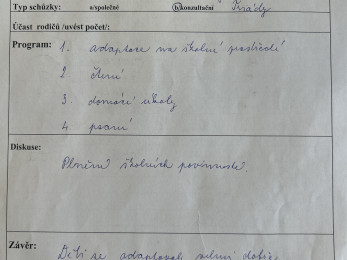 Typ schůzky: a/společné b/konzultační Triády
Účast rodičů /uvést počet/:
Program: 1. adaptace na školní prostředí
2 čtení
3. domácí úkoly
4 psaní
Diskuse:
Plnění školních povinností
Závěr: Děti se adaptovali velmi dobře